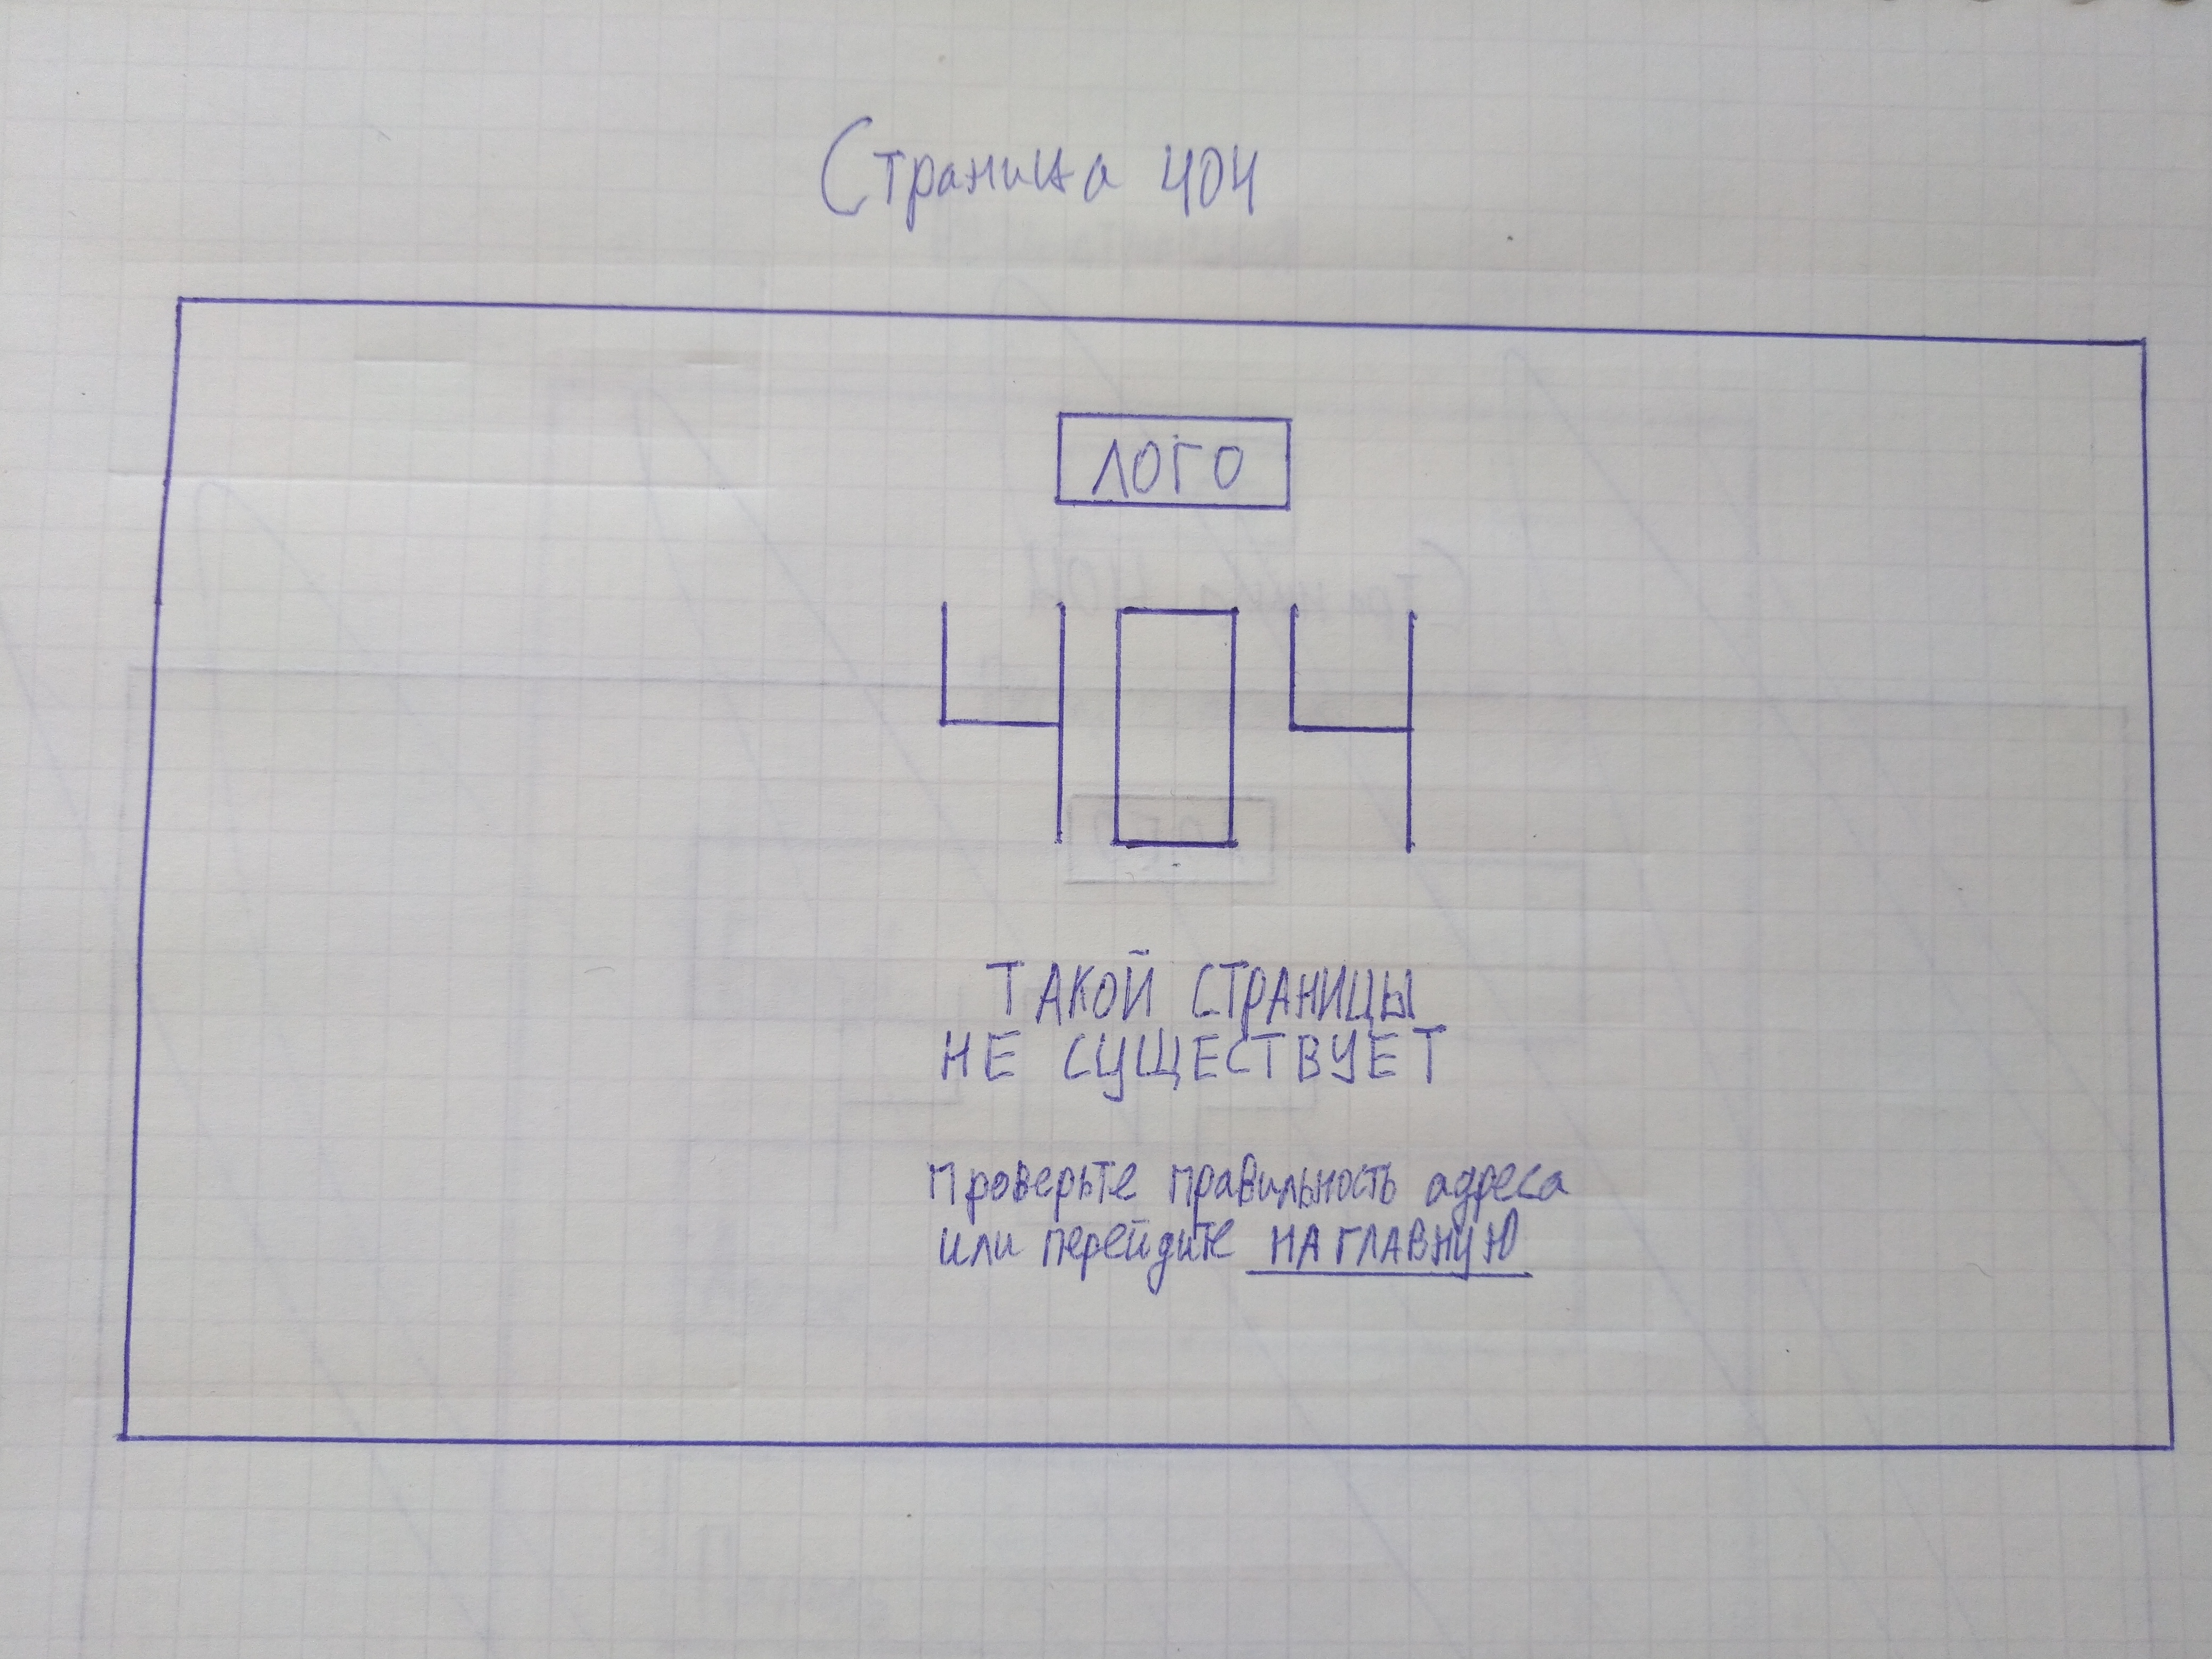 Страница 404
ЛОГО
404
ТАКОЙ СТРАНИЦЫ
НЕ СУЩЕСТВУЕТ
Проверьте правильность адреса
или перейдите НА ГЛАВНУЮ